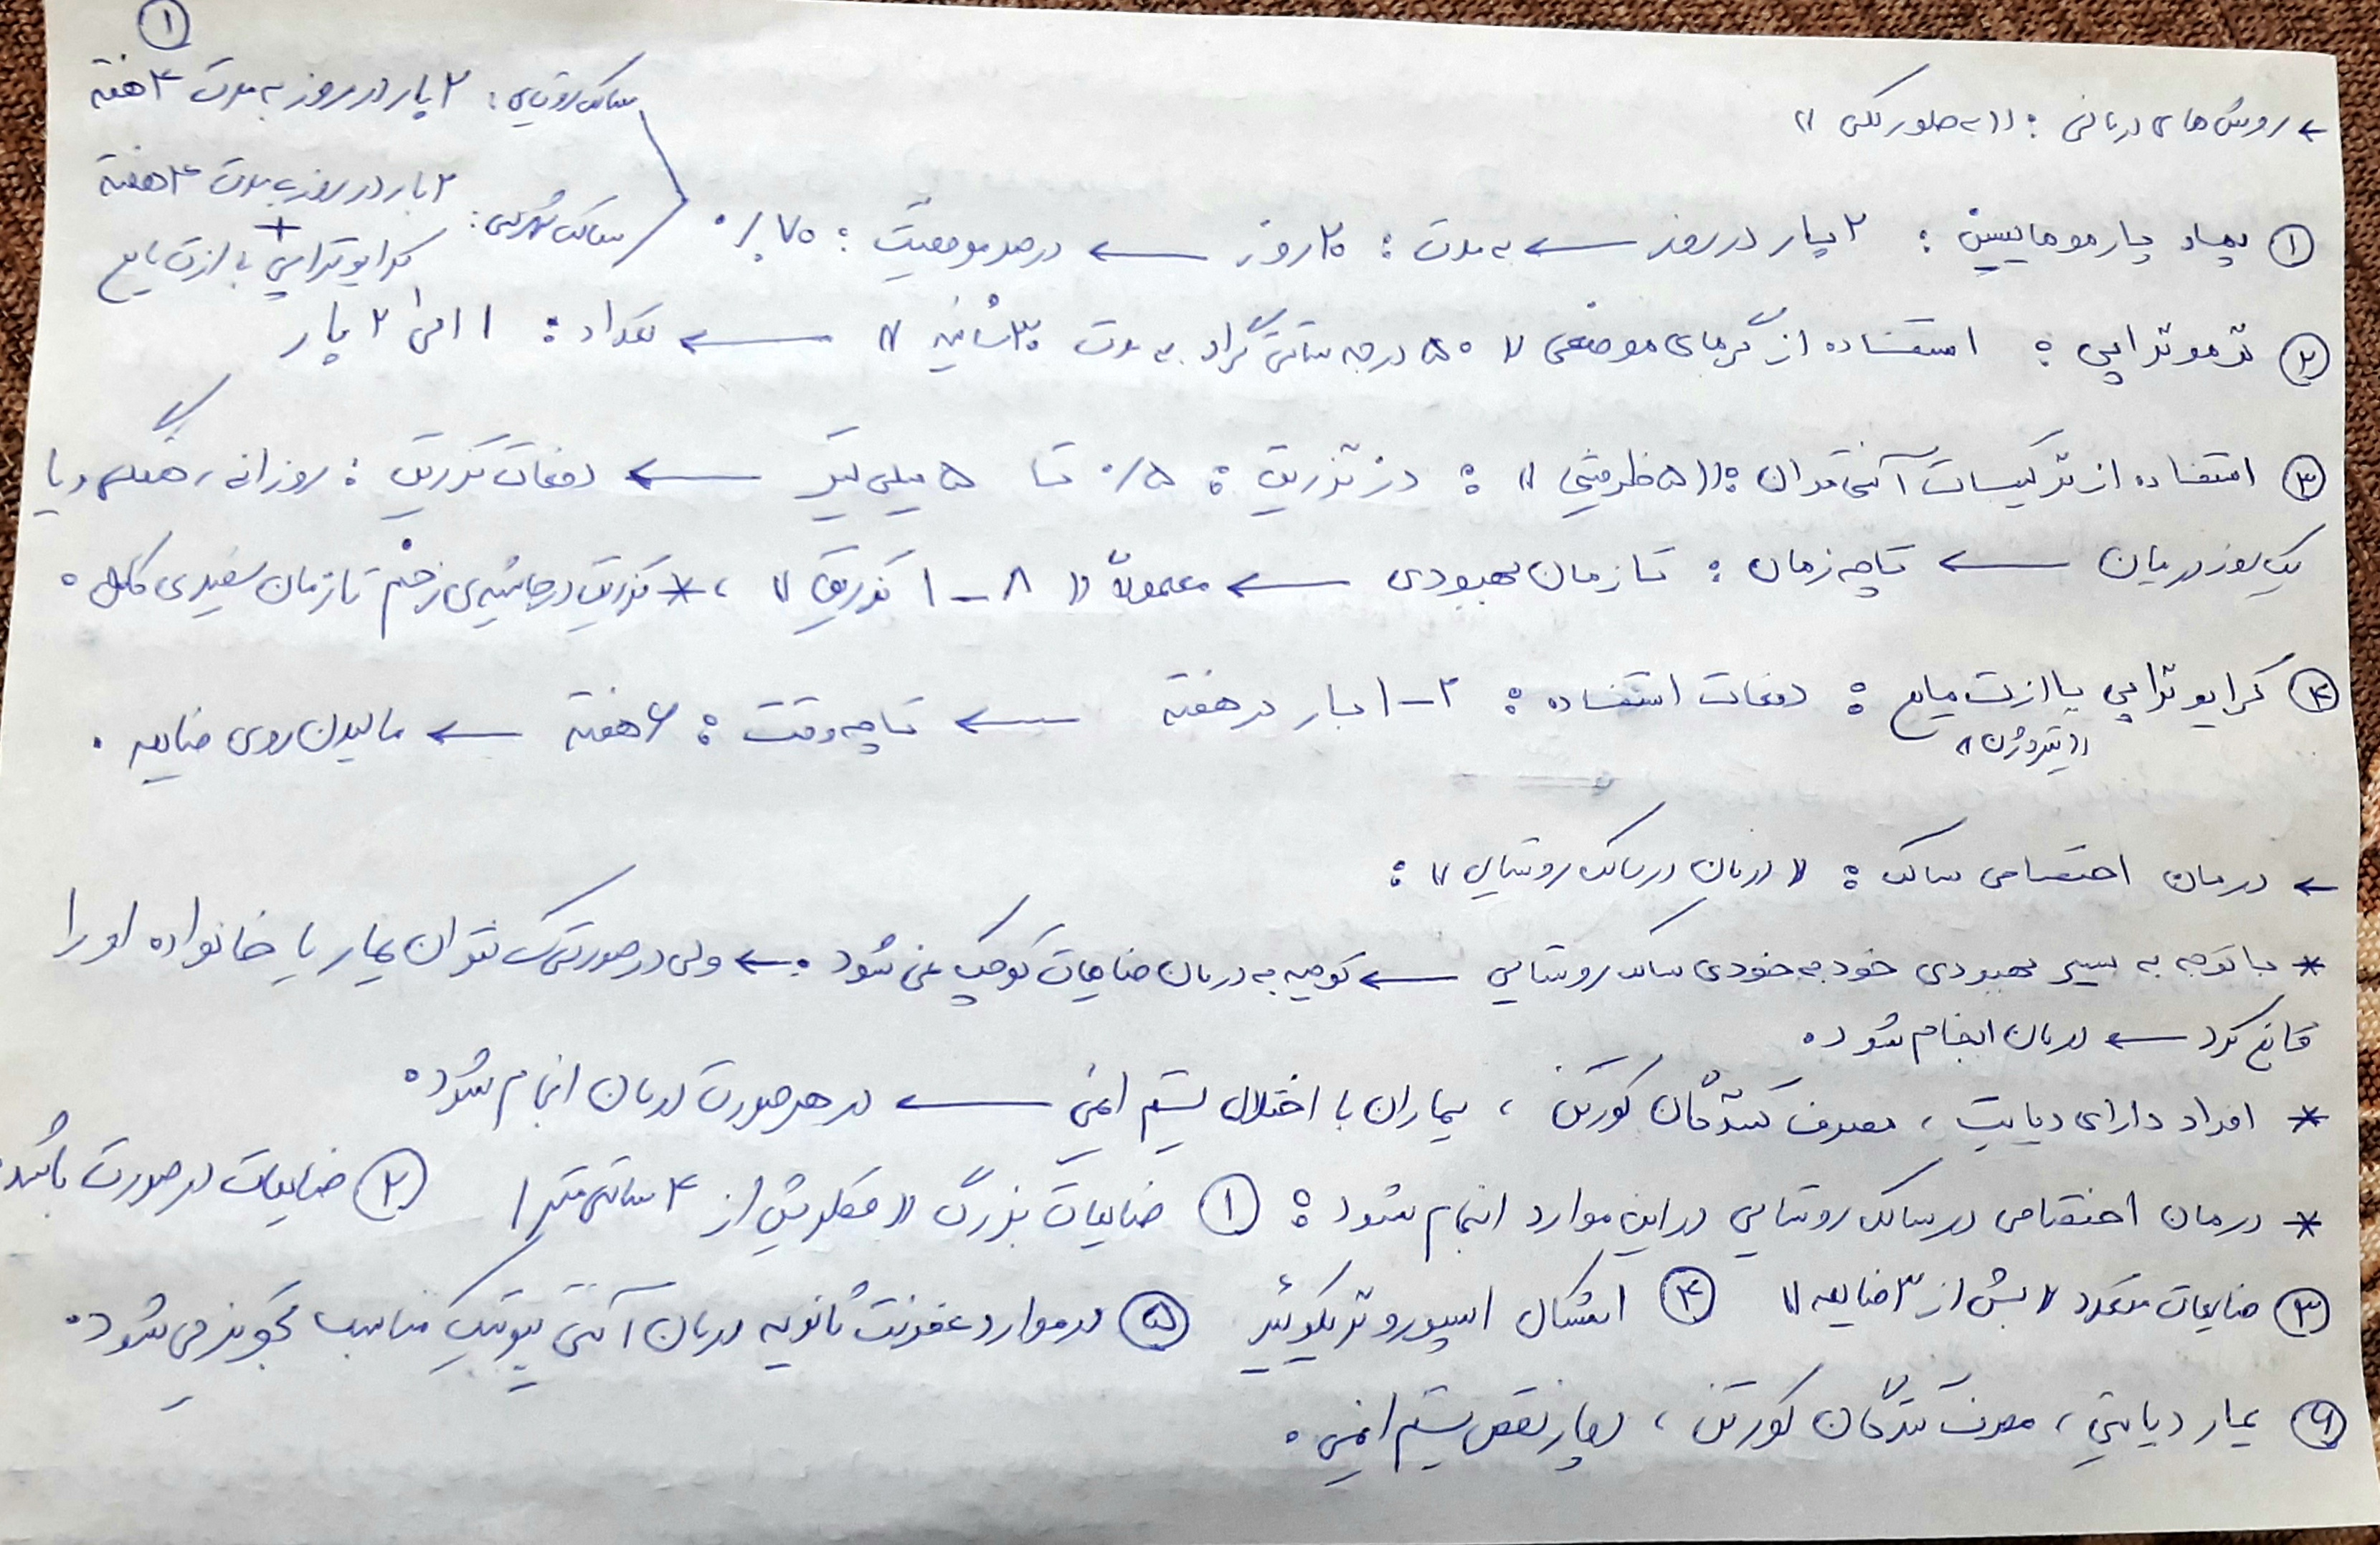 ①
← روش های درمانی : «به طور کلی»
سالک روستایی : ۲ بار در روز به مدت ۴ هفته
سالک شهری : ۲ بار در روز به مدت ۴ هفته
+
کرایوتراپی با ازت مایع
① پماد پارمومایسین : ۲ بار در روز ← به مدت : ۲۰ روز ← درصد موفقیت : ۷۰٪
② ترموتراپی : استفاده از گرمای موضعی «۵۰ درجه سانتی گراد به مدت ۳۰ ثانیه» ← تعداد : ۱ الی ۲ بار
③ استفاده از ترکیبات آنتی موان : «۵ ظرفیتی» : دز تزریق : ۰/۵ تا ۵ میلی لیتر ← دفعات تزریق : روزانه، هفتگی و یا
یک روز در میان ← تا چه زمان : تا زمان بهبودی ← معمولاً «۸ - ۱ تزریق»، * تزریق در حاشیه ی زخم تا زمان سفیدی کامل.
④ کرایوتراپی با ازت مایع : دفعات استفاده : ۲-۱ بار در هفته ← تا چه وقت : ۶ هفته ← مالیدن روی ضایعه.
«نیتروژن»
← درمان اختصاصی سالک : «درمان در سالک روستایی» :
* با توجه به سیر بهبودی خود به خودی سالک روستایی ← توصیه به درمان ضایعات کوچک نمی شود. ← ولی در صورتی که نتوان بیمار یا خانواده او را
قانع کرد ← درمان انجام شود.
* افراد دارای دیابت، مصرف کنندگان کورتن، بیماران با اختلال سیستم ایمنی ← در هر صورت درمان انجام شود.
* درمان اختصاصی در سالک روستایی در این موارد انجام شود : ① ضایعات بزرگ «قطر بیش از ۴ سانتی متر» ② ضایعات در صورت باشد.
③ ضایعات متعدد «بیش از ۳ ضایعه» ④ اشکال اسپوروتریکوئید ⑤ در موارد عفونت ثانویه درمان آنتی بیوتیک مناسب تجویز می شود.
⑥ بیمار دیابتی، مصرف کنندگان کورتن، دچار نقص سیستم ایمنی.